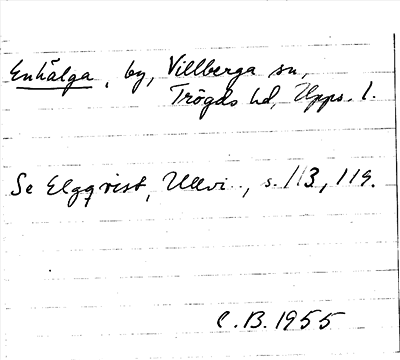 Enhälga, by, Villberga sn,
Trögds hd, Upps. l.
Se Elgqvist, Ullvi.., s. 113, 119.
C.B. 1955